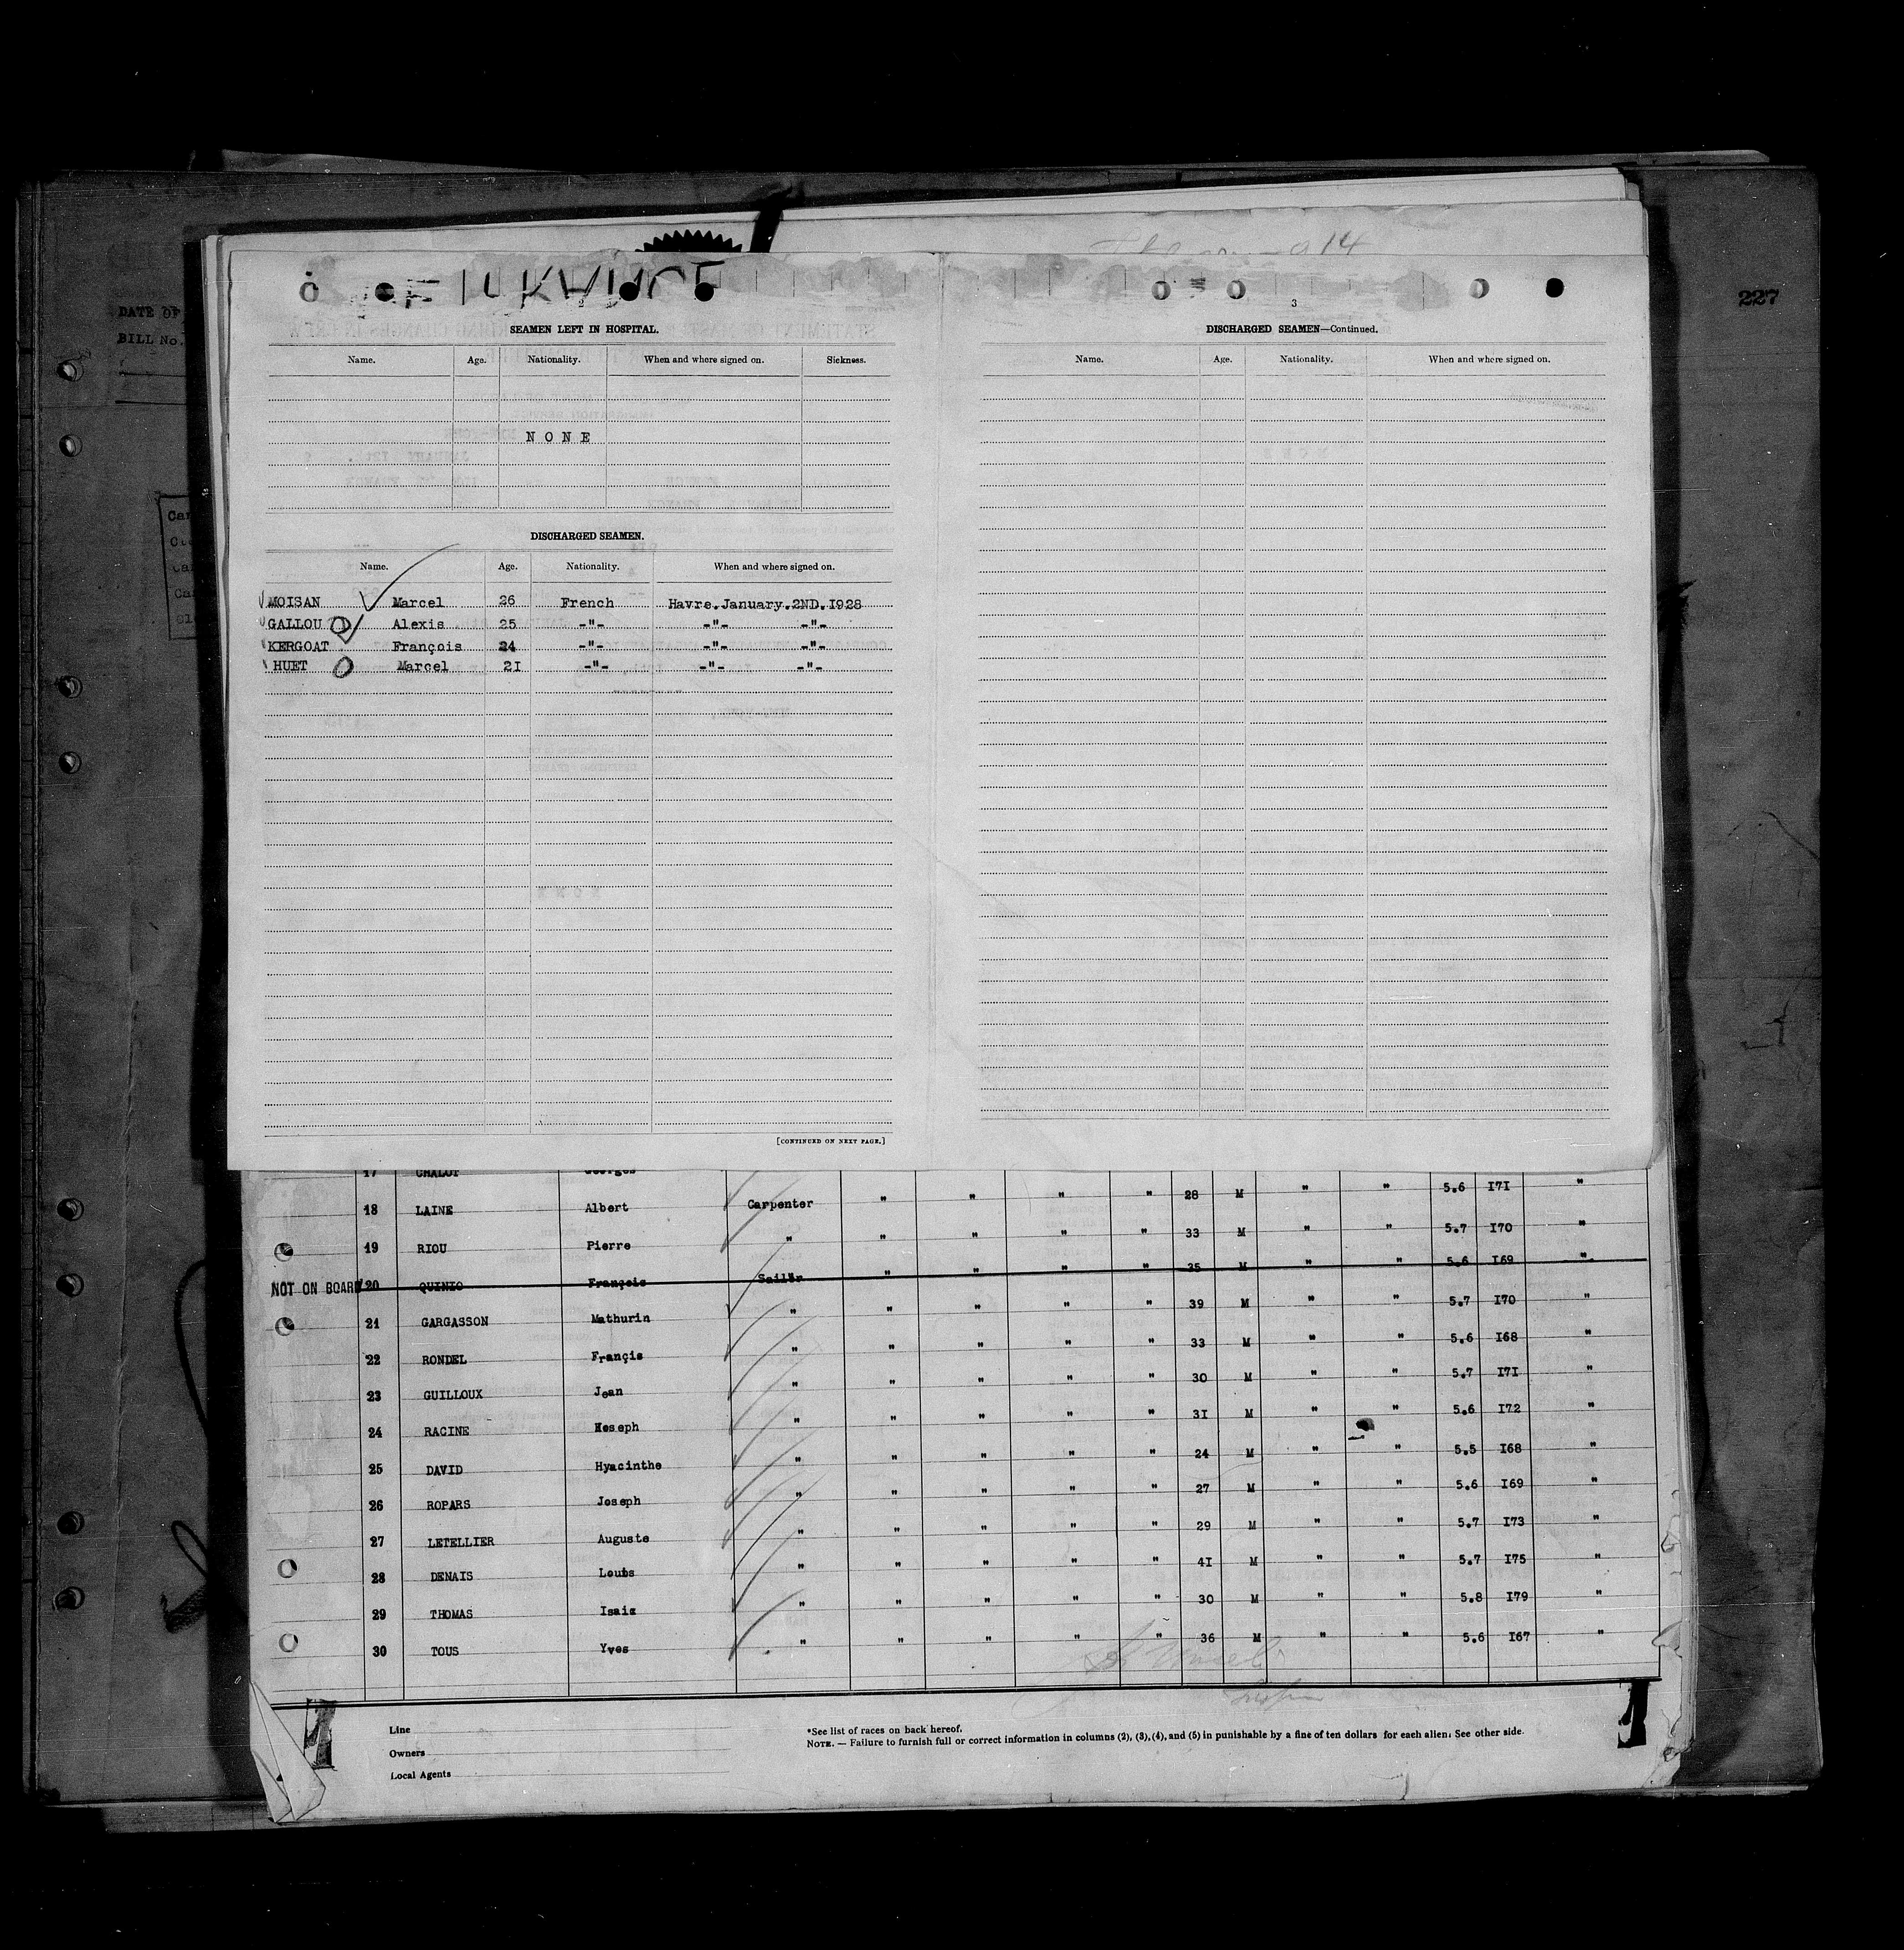 DATE OF
BILL No.
227
14
2
SEAMEN LEFT IN HOSPITAL.
Name. Age. Nationality. When and where signed on. Sickness.
N O N E
DISCHARGED SEAMEN.
Name. Age. Nationality. When and where signed on.
MOISAN Marcel 26 French Havre.January.2ND.I928
GALLOU Alexis 25 -"- -"- -"-
KERGOAT François 24 -"- -"- -"-
HUET Marcel 2I -"- -"- -"-
[CONTINUED ON NEXT PAGE.]
3
DISCHARGED SEAMEN—Continued.
Name. Age. Nationality. When and where signed on.
17 CHALOT Georges
18 LAINE Albert Carpenter " " " " 28 M " " 5.6 I7I "
19 RIOU Pierre " " " " " 33 M " " 5.7 I70 "
NOT ON BOARD 20 QUINIO François Sailor " " " " 35 M " " 5.6 I69 "
21 GARGASSON Mathurin " " " " " 39 M " " 5.7 I70 "
22 RONDEL Françis " " " " " 33 M " " 5.6 I68 "
23 GUILLOUX Jean " " " " " 30 M " " 5.7 I7I "
24 RACINE Joseph " " " " " 3I M " " 5.6 I72 "
25 DAVID Hyacinthe " " " " " 24 M " " 5.5 I68 "
26 ROPARS Joseph " " " " " 27 M " " 5.6 I69 "
27 LETELLIER Auguste " " " " " 29 M " " 5.7 I73 "
28 DENAIS Louis " " " " " 4I M " " 5.7 I75 "
29 THOMAS Isaie " " " " " 30 M " " 5.8 I79 "
30 TOUS Yves " " " " " 36 M " " 5.6 I67 "
Line
Owners
Local Agents
*See list of races on back hereof.
NOTE. — Failure to furnish full or correct information in columns (2), (3), (4), and (5) in punishable by a fine of ten dollars for each alien. See other side.